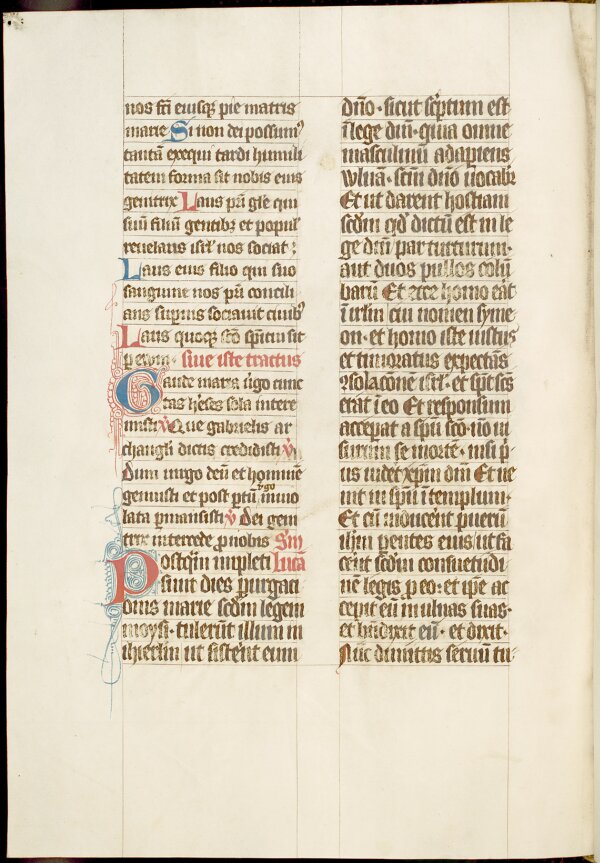 nos sc̄i eiusq; pie matris
marie Si non dei possum᷒
tantā exequi tardi humili
tatem forma sit nobis eius
genitrix Laus pr̄i gl̄e qui
suū filiū gentibꝫ et popul᷒
reuelans isrl̓ nos sociat :
Laus eius filio qui suo
sanguine nos pr̄i concili
ans supius sociauit ciuib᷒
Laus quoqꝫ sc̄o sp̄iritui sit
p eūom. siue iste tractus
Gaude maria v̓go cunc
tas h̓eses sola intere
misti v̓ Que gabrielis ar
changl̓i dictis credidisti v̓
Dum uirgo deū et hominē
genuisti et post ptū v̓go inuio
lata pmansisti v̓ Dei geni
trix intercede p nobis Sm̄
Postq̄m impleti Lucā
sunt dies purgati
onis marie scd̄m legem
moysi. tulerūt illum in
ihrlm̄ ut sistēnt eum
dn̄o. sicut scptum est
ī lege dn̄i. quia omne
masculinū adapiens
wlua. scm̄ dn̄o uocabr̄
Et ut darent hostiam
scd̄m qd̓ dictū est in le
ge dn̄i par turturum.
aut duos pullos colū
barū Et ecce homo eāt
ī irlm̄ cui nomen syme
on. et homo iste iustus
et timoratus expectās
ꝯsolac̄onē isrl̓. et sp̄c sc̄s
erat ī eo Et responsum
accepat a sp̄u sc̄o. nō ui
surum se morte. nisi p̓
us uidēt xp̄m dn̄i Et ue
nit in sp̄u ī templum.
Et cū inducēnt puerū
ihm̄ pentes eius ut fa
cēnt scd̄m consuetudi
nē legis p eo. et ip̄e ac
cepit eū in ulnas suas.
et bn̄dixit eū. et dixit.
Nūc dimittis seruū tu-